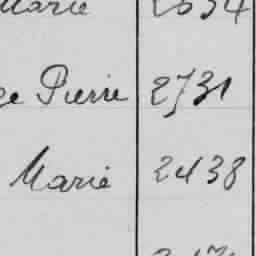 Marie 2634
ge Pierre 2731
Marie 2438